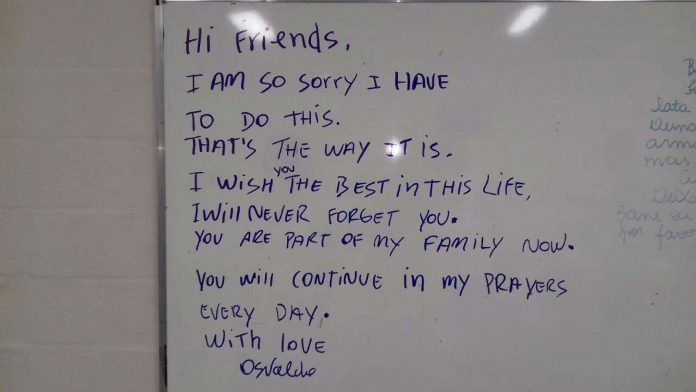 Hi Friends,
I AM SO SORRY I HAVE
TO DO THIS.
THAT'S THE WAY IT IS.
I WISH YOU THE BEST in THIS LIFE,
I Will NEVER FORGET YOU.
YOU ARE PART OF MY FAMILY NOW.
YOU WILL CONTINUE in MY PRAYERS
EVERY DAY.
WITH LOVE
Osvaldo
lata
mas
por favo